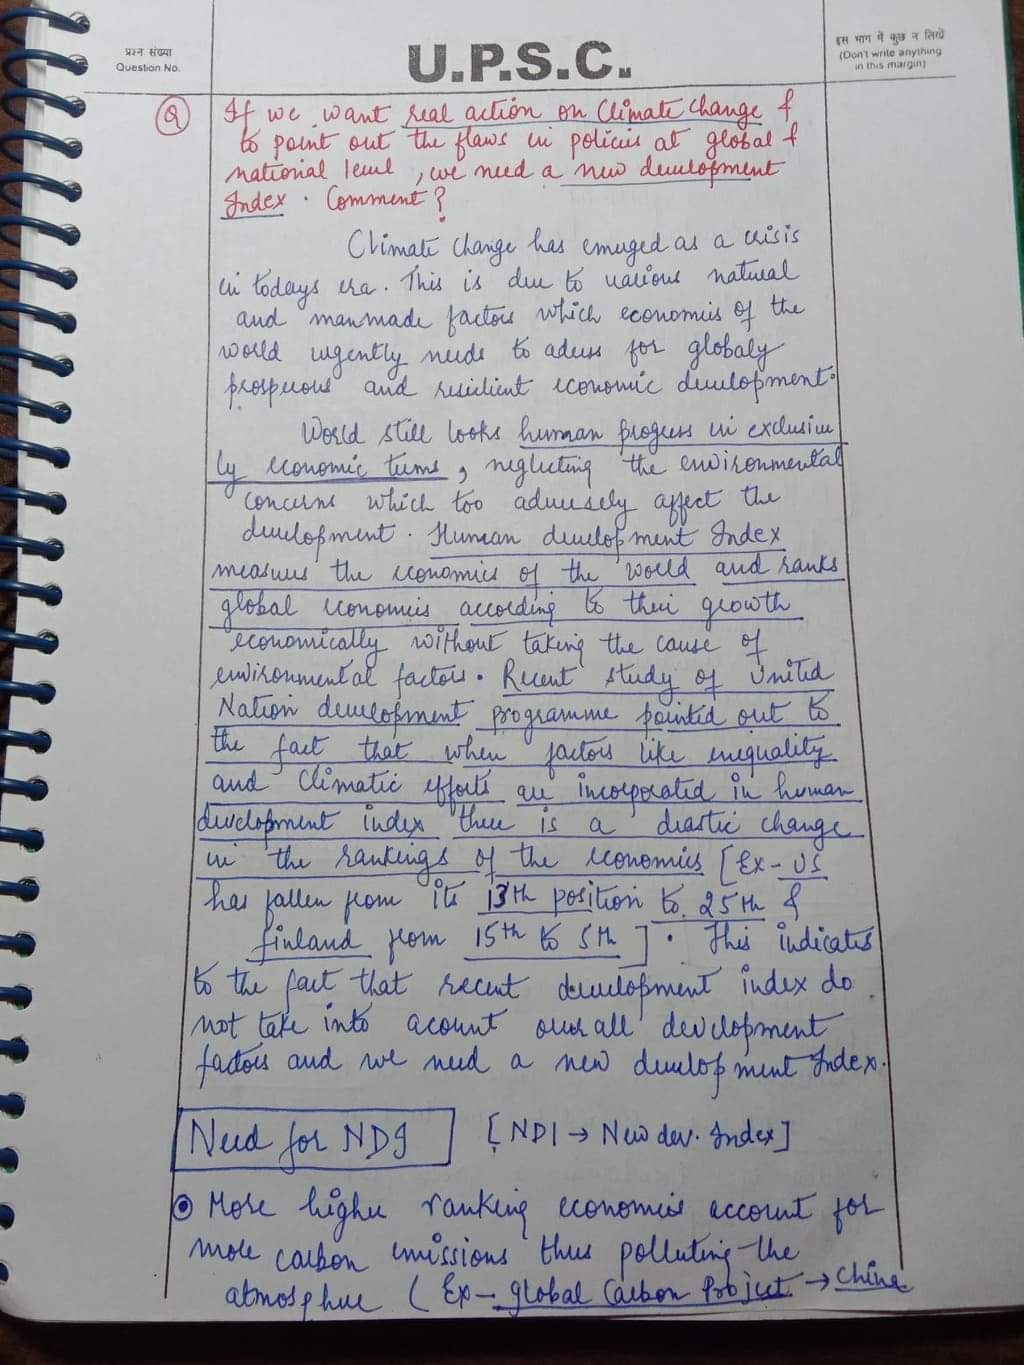 प्रश्न संख्या
Question No.
U.P.S.C.
इस भाग में कुछ न लिखें
(Don't write anything
in this margin)
Q If we want real action on Climate change &
to point out the flaws in policies at global &
national level, we need a new development
Index. Comment?
Climate change has emerged as a crisis
in todays era. This is due to various natural
and manmade factors which economies of the
world urgently needs to adress for globaly
prosperous and resilient economic development.
World still looks human progress in exclusive
ly economic terms, neglecting the environmental
concerns which too adversely affect the
development. Human development Index
measures the economies of the world and ranks
global economies according to their growth
economically without taking the cause of
environmental factors. Recent study of United
Nation development programme pointed out to
the fact that when factors like inequality
and Climatic efforts are incorporated in human
development index there is a drastic change
in the rankings of the economies [Ex- US
has fallen from its 13th position to 25th &
finland from 15th to 5th]. This indicates
to the fact that recent development index do
not take into acount overall development
factors and we need a new development Index.
Need for NDI [NDI → New dev. Index]
More higher ranking economies account for
more carbon emissions thus polluting the
atmosphere (Ex- global Carbon Project → China